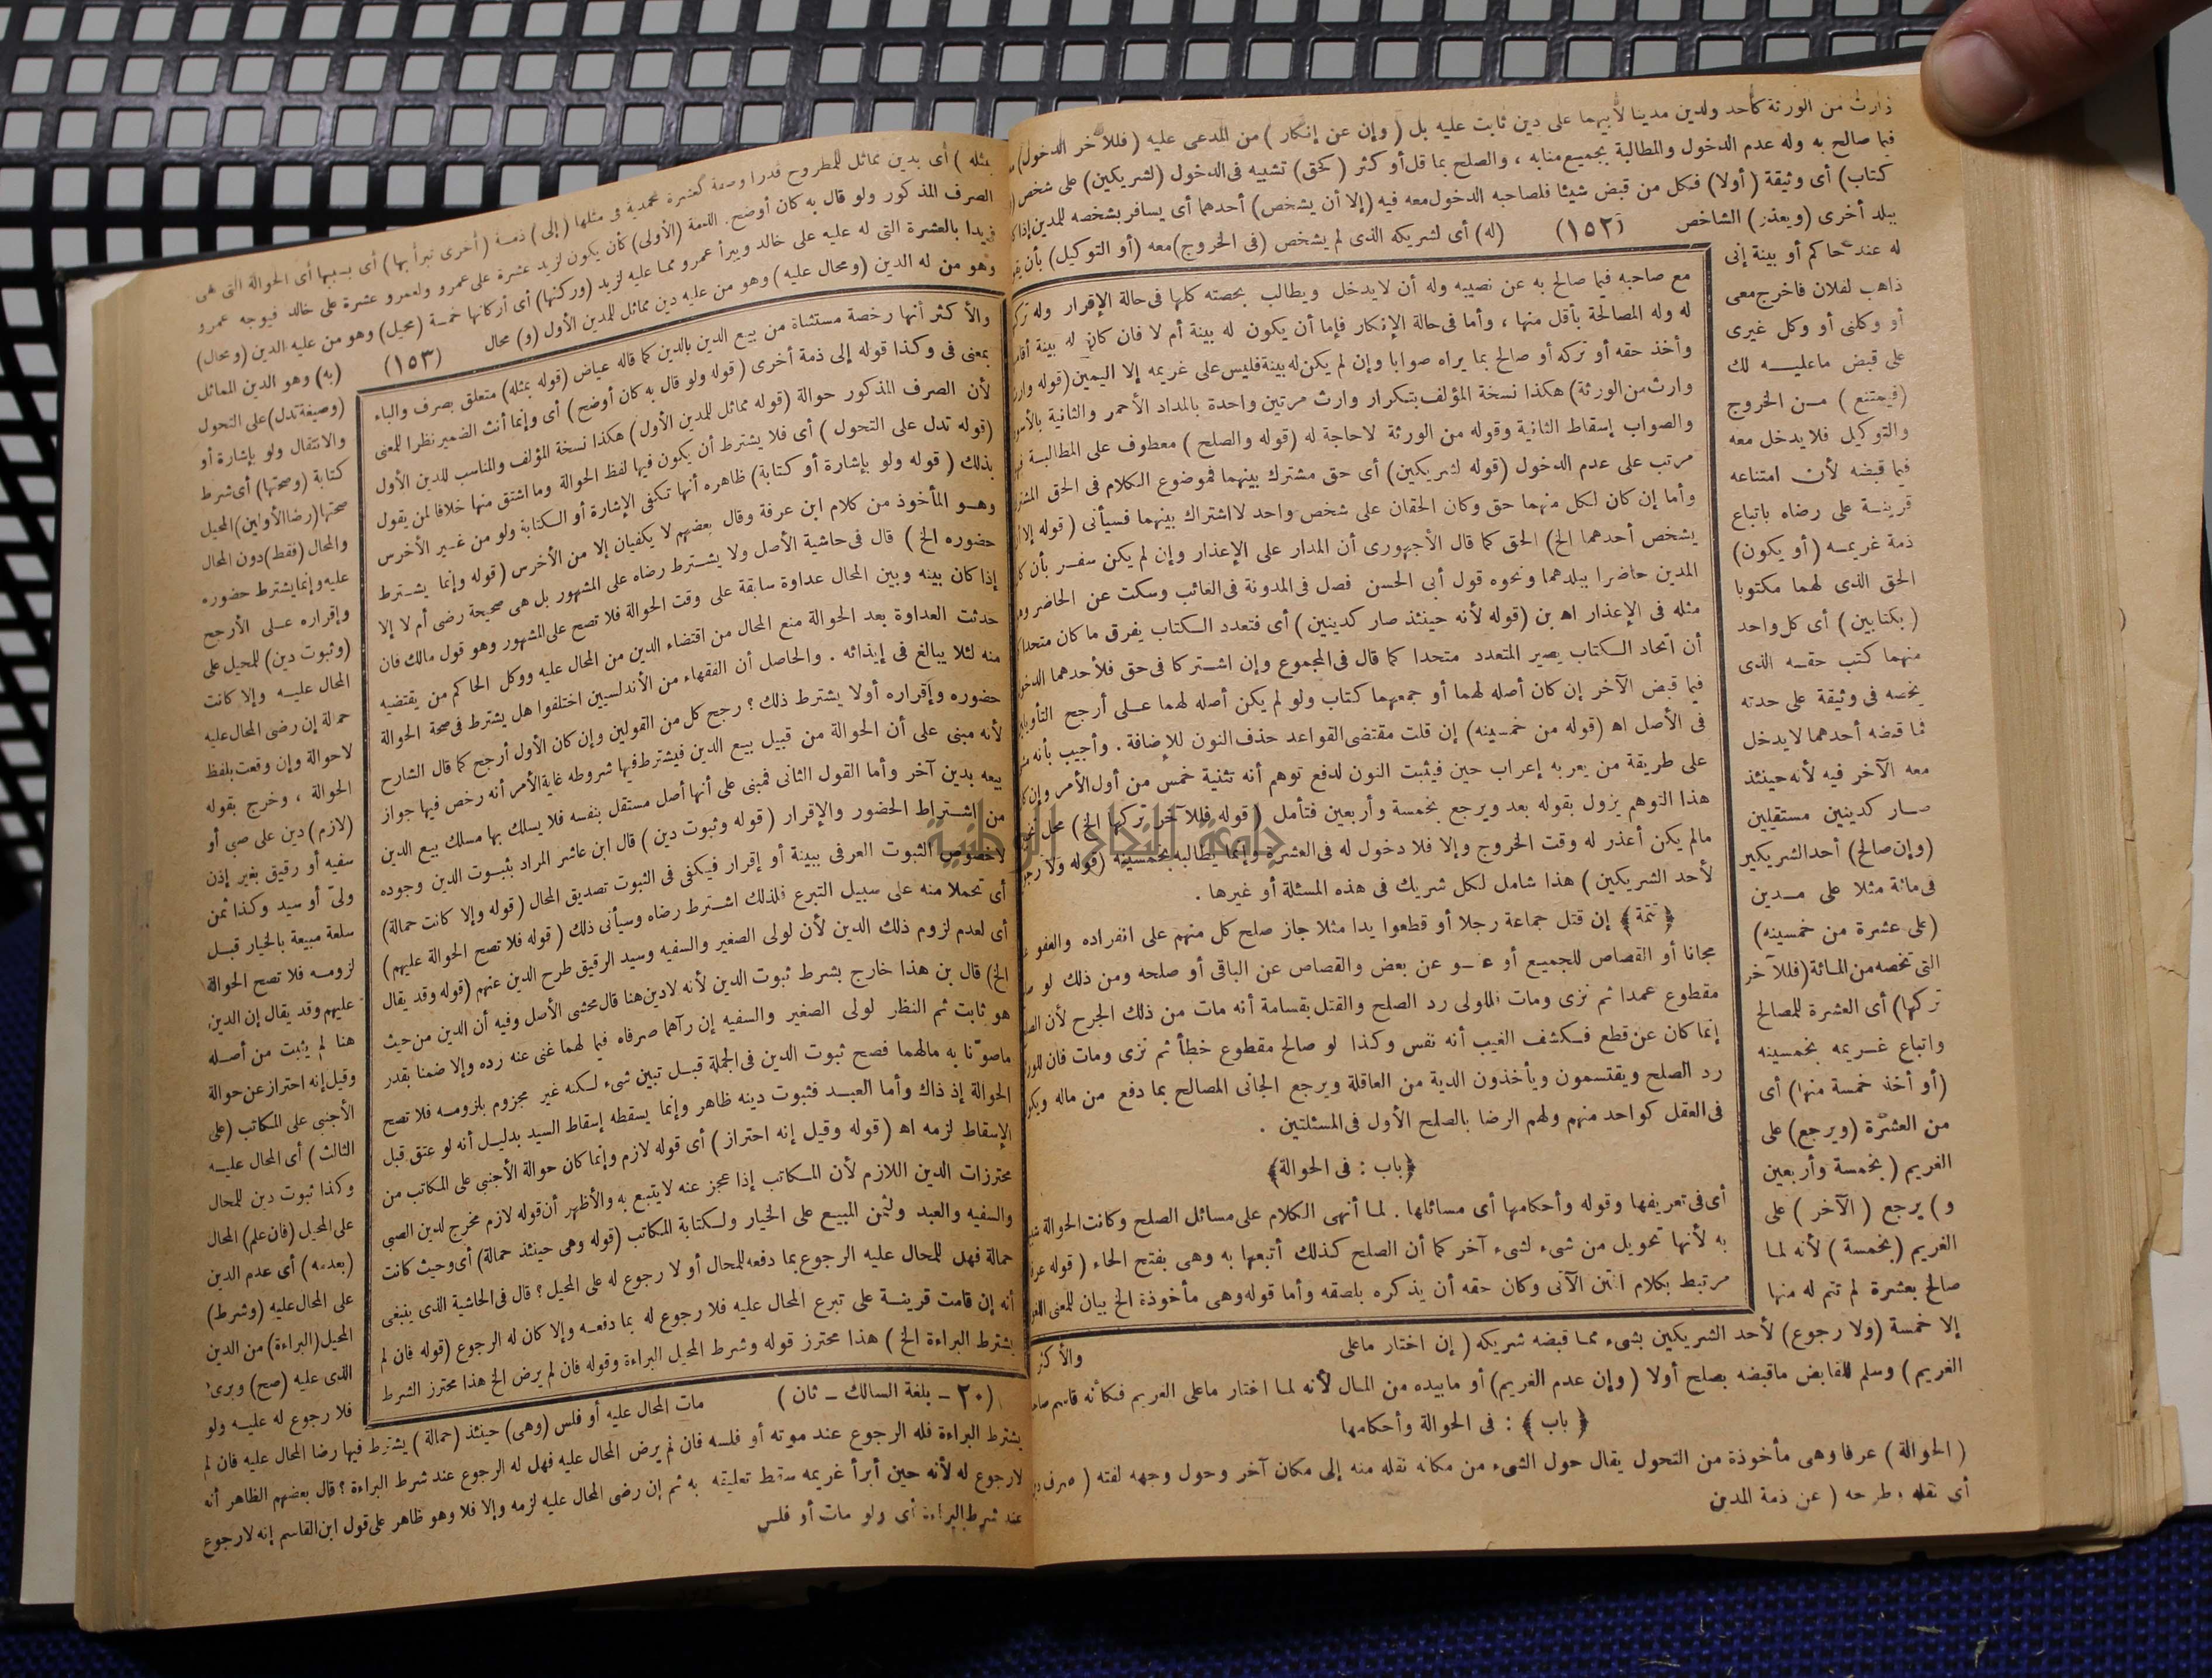 وارث من الورثة كأحد ولدين مدينا لأبيهما على دين ثابت عليه بل (وإن عن إنكار) من المدعى عليه (فللآخر الدخول)
فيما صالح به وله عدم الدخول والمطالبة بجميع منابه ، والصلح بما قل أو كثر (كحق) تشبيه فى الدخول (لشريكين) على شخص
كتاب) أى وثيقة (أولا) فكل من قبض شيئا فلصاحبه الدخول معه فيه (إلا أن يشخص) أحدهما أى يسافر بشخصه للمدين إذا
ببلد أخرى (ويعذر) الشاخص (١٥٢) (له) أى لشريكه الذى لم يشخص (فى الخروج) معه (أو التوكيل) بأن
له عند حاكم أو بينة إنى
ذاهب لفلان فاخرج معى
أو وكلنى أو وكل غيرى
على قبض ماعليه لك
(فيمتنع) من الخروج
والتوكيل فلا يدخل معه
فيما قبضه لأن امتناعه
قرينة على رضاه باتباع
ذمة غريمه (أو يكون)
الحق الذى لهما مكتوبا
(بكتابين) أى كل واحد
منهما كتب حقه الذى
يخصه فى وثيقة على حدته
فما قبضه أحدهما لا يدخل
معه الآخر فيه لأنه حينئذ
صار كدينين مستقلين
(وإن صالح) أحد الشريكين
فى مائة مثلا على مدين
(على عشرة من خمسينه)
التى تخصه من المائة (فللآخر
تركها) أى العشرة للمصالح
واتباع غريمه بخمسينه
(أو أخذ خمسة منها) أى
من العشرة (ويرجع) على
الغريم (بخمسة وأربعين
و) يرجع (الآخر) على
الغريم (بخمسة) لأنه لما
صالح بعشرة لم تتم له منها
إلا خمسة (ولا رجوع) لأحد الشريكين بشىء مما قبضه شريكه (إن اختار ماعلى
الغريم) وسلم للقابض ماقبضه بصلح أولا (وإن عدم الغريم) أو مابيده من المال لأنه لما اختار ماعلى الغريم فكأنه قاسم
﴿باب﴾ : فى الحوالة وأحكامها
(الحوالة) عرفا وهى مأخوذة من التحول يقال حول الشىء من مكانه نقله منه إلى مكان آخر وحول وجهه لفته (صرف
أى نقله وطرحه (عن ذمة المدين
مع صاحبه فيما صالح به عن نصيبه وله أن لايدخل ويطالب بحصته كلها فى حالة الإقرار وله
له وله المصالحة بأقل منها ، وأما فى حالة الإنكار فإما أن يكون له بينة أم لا فان كان له بينة
وأخذ حقه أو تركه أو صالح بما يراه صوابا وإن لم يكن له بينة فليس على غريمه إلا اليمين (قوله
وارث من الورثة) هكذا نسخة المؤلف بتكرار وارث مرتين واحدة بالمداد الأحمر والثانية
والصواب إسقاط الثانية وقوله من الورثة لاحاجة له (قوله والصلح) معطوف على المطالبة
مرتب على عدم الدخول (قوله لشريكين) أى حق مشترك بينهما فموضوع الكلام فى الحق
وأما إن كان لكل منهما حق وكان الحقان على شخص واحد لااشتراك بينهما فسيأتى (قوله
يشخص أحدهما الخ) الحق كما قال الأجهورى أن المدار على الإعذار وإن لم يكن سفر بأن
المدين حاضرا ببلدهما ونحوه قول أبى الحسن فصل فى المدونة فى الغائب وسكت عن الحاضر
مثله فى الإعذار اه بن (قوله لأنه حينئذ صار كدينين) أى فتعدد الكتاب يفرق ما كان
أن اتحاد الكتاب يصير المتعدد متحدا كما قال فى المجموع وإن اشتركا فى حق فلأحدهما
فيما قبض الآخر إن كان أصله لهما أو جمعهما كتاب ولو لم يكن أصله لهما على أرجح
فى الأصل اه (قوله من خمسينه) إن قلت مقتضى القواعد حذف النون للإضافة . وأجيب بأنه
على طريقة من يعربه إعراب حين فيثبت النون لدفع توهم أنه تثنية خمس من أول الأمر
هذا التوهم يزول بقوله بعد ويرجع بخمسة وأربعين فتأمل (قوله فللآخر تركها الخ) محل
مالم يكن أعذر له وقت الخروج وإلا فلا دخول له فى العشرة وإنما يطالبه بخمسينه (قوله ولا
لأحد الشريكين) هذا شامل لكل شريك فى هذه المسئلة أو غيرها .
﴿تتمة﴾ إن قتل جماعة رجلا أو قطعوا يدا مثلا جاز صلح كل منهم على انفراده والعفو
مجانا أو القصاص للجميع أو عفو عن بعض والقصاص عن الباقى أو صلحه ومن ذلك لو
مقطوع عمدا ثم نزى ومات فللولى رد الصلح والقتل بقسامة أنه مات من ذلك الجرح لأن
إنما كان عن قطع فكشف الغيب أنه نفس وكذا لو صالح مقطوع خطأ ثم نزى ومات فان
رد الصلح ويقتسمون ويأخذون الدية من العاقلة ويرجع الجانى المصالح بما دفع من ماله
فى العقل كواحد منهم ولهم الرضا بالصلح الأول فى المسئلتين .
﴿باب : فى الحوالة﴾
أى فى تعريفها وقوله وأحكامها أى مسائلها . لما أنهى الكلام على مسائل الصلح وكانت الحوالة
به لأنها تحويل من شىء لشىء آخر كما أن الصلح كذلك أتبعها به وهى بفتح الحاء (قوله
مرتبط بكلام المتن الآتى وكان حقه أن يذكره بلصقه وأما قوله وهى مأخوذة الخ بيان للمعنى
والأكثر
بمثله) أى بدين مماثل للمطروح قدرا وصفة كعشرة محمدية فى مثلها (إلى) ذمة (أخرى تبرأ بها) أى بسببها أى الحوالة التى هى
الصرف المذكور ولو قال به كان أوضح. الذمة (الأولى) كأن يكون لزيد عشرة على عمرو ولعمرو عشرة على خالد فيوجه عمرو
زيدا بالعشرة التى له عليه على خالد ويبرأ عمرو مما عليه لزيد (وركنها) أى أركانها خمسة (محيل) وهو من عليه الدين (ومحال)
وهو من له الدين (ومحال عليه) وهو من عليه دين مماثل للمدين الأول (و) محال (١٥٣) (به) وهو الدين المماثل
(وصيغة تدل) على التحول
والانتقال ولو بإشارة أو
كتابة (وصحتها) أى شرط
صحتها (رضا الأولين) المحيل
والمحال (فقط) دون المحال
عليه وإنما يشترط حضوره
وإقراره على الأرجح
(وثبوت دين) للمحيل على
المحال عليه وإلا كانت
حمالة إن رضى المحال عليه
لاحوالة وإن وقعت بلفظ
الحوالة ، وخرج بقوله
(لازم) دين على صبى أو
سفيه أو رقيق بغير إذن
ولىّ أو سيد وكذا ثمن
سلعة مبيعة بالخيار قبل
لزومه فلا تصح الحوالة
عليهم وقد يقال إن الدين
هنا لم يثبت من أصله
وقيل إنه احتراز عن حوالة
الأجنبى على المكاتب (على
الثالث) أى المحال عليه
وكذا ثبوت دين للمحال
على المحيل (فان علم) المحال
(بعدمه) أى عدم الدين
على المحال عليه (وشرط)
المحيل (البراءة) من الدين
الذى عليه (صح) وبرئ
فلا رجوع له عليه ولو
والأكثر أنها رخصة مستثناة من بيع الدين بالدين كما قاله عياض (قوله بمثله) متعلق بصرف والباء
بمعنى فى وكذا قوله إلى ذمة أخرى (قوله ولو قال به كان أوضح) أى وإنما أنث الضمير نظرا للمعنى
لأن الصرف المذكور حوالة (قوله مماثل للمدين الأول) هكذا نسخة المؤلف والمناسب للدين الأول
(قوله تدل على التحول) أى فلا يشترط أن يكون فيها لفظ الحوالة وما اشتق منها خلافا لمن يقول
بذلك (قوله ولو بإشارة أو كتابة) ظاهره أنها تكفى الإشارة أو الكتابة ولو من غير الأخرس
وهو المأخوذ من كلام ابن عرفة وقال بعضهم لا يكفيان إلا من الأخرس (قوله وإنما يشترط
حضوره الخ) قال فى حاشية الأصل ولا يشترط رضاه على المشهور بل هى صحيحة رضى أم لا إلا
إذا كان بينه وبين المحال عداوة سابقة على وقت الحوالة فلا تصح على المشهور وهو قول مالك فان
حدثت العداوة بعد الحوالة منع المحال من اقتضاء الدين من المحال عليه ووكل الحاكم من يقتضيه
منه لئلا يبالغ فى إيذائه . والحاصل أن الفقهاء من الأندلسيين اختلفوا هل يشترط فى صحة الحوالة
حضوره وإقراره أولا يشترط ذلك ؟ رجح كل من القولين وإن كان الأول أرجح كما قال الشارح
لأنه مبنى على أن الحوالة من قبيل بيع الدين فيشترط فيها شروطه غاية الأمر أنه رخص فيها جواز
بيعه بدين آخر وأما القول الثانى فمبنى على أنها أصل مستقل بنفسه فلا يسلك بها مسلك بيع الدين
من اشتراط الحضور والإقرار (قوله وثبوت دين) قال ابن عاشر المراد بثبوت الدين وجوده
لاخصوص الثبوت العرفى ببينة أو إقرار فيكفى فى الثبوت تصديق المحال (قوله وإلا كانت حمالة)
أى تحملا منه على سبيل التبرع فلذلك اشترط رضاه وسيأتى ذلك (قوله فلا تصح الحوالة عليهم)
أى لعدم لزوم ذلك الدين لأن لولى الصغير والسفيه وسيد الرقيق طرح الدين عنهم (قوله وقد يقال
الخ) قال بن هذا خارج بشرط ثبوت الدين لأنه لادين هنا قال محشى الأصل وفيه أن الدين من حيث
هو ثابت ثم النظر لولى الصغير والسفيه إن رآهما صرفاه فيما لهما غنى عنه رده وإلا ضمنا بقدر
ماصوّنا به مالهما فصح ثبوت الدين فى الجملة قبل تبين شىء لكنه غير مجزوم بلزومه فلا تصح
الحوالة إذ ذاك وأما العبد فثبوت دينه ظاهر وإنما يسقطه إسقاط السيد بدليل أنه لو عتق قبل
الإسقاط لزمه اه (قوله وقيل إنه احتراز) أى قوله لازم وإنما كان حوالة الأجنبى على المكاتب من
محترزات الدين اللازم لأن المكاتب إذا عجز عنه لا يتبع به والأظهر أن قوله لازم مخرج لدين الصبى
والسفيه والعبد ولثمن المبيع على الخيار ولكتابة المكاتب (قوله وهى حينئذ حمالة) أى وحيث كانت
حمالة فهل للمحال عليه الرجوع بما دفعه للمحال أو لا رجوع له على المحيل ؟ قال فى الحاشية الذى ينبغى
أنه إن قامت قرينة على تبرع المحال عليه فلا رجوع له بما دفعه وإلا كان له الرجوع (قوله فان لم
يشترط البراءة الخ) هذا محترز قوله وشرط المحيل البراءة وقوله فان لم يرض الخ هذا محترز الشرط
(٢٠ – بلغة السالك – ثان)
مات المحال عليه أو فلس (وهى) حينئذ (حمالة) يشترط فيها رضا المحال عليه فان لم
يشترط البراءة فله الرجوع عند موته أو فلسه فان لم يرض المحال عليه فهل له الرجوع عند شرط البراءة ؟ قال بعضهم الظاهر أنه
لارجوع له لأنه حين أبرأ غريمه سقط تعليقه به ثم إن رضى المحال عليه لزمه وإلا فلا وهو ظاهر على قول ابن القاسم إنه لارجوع
عند شرط البراءة أى ولو مات أو فلس
جامعة النجاح الوطنية